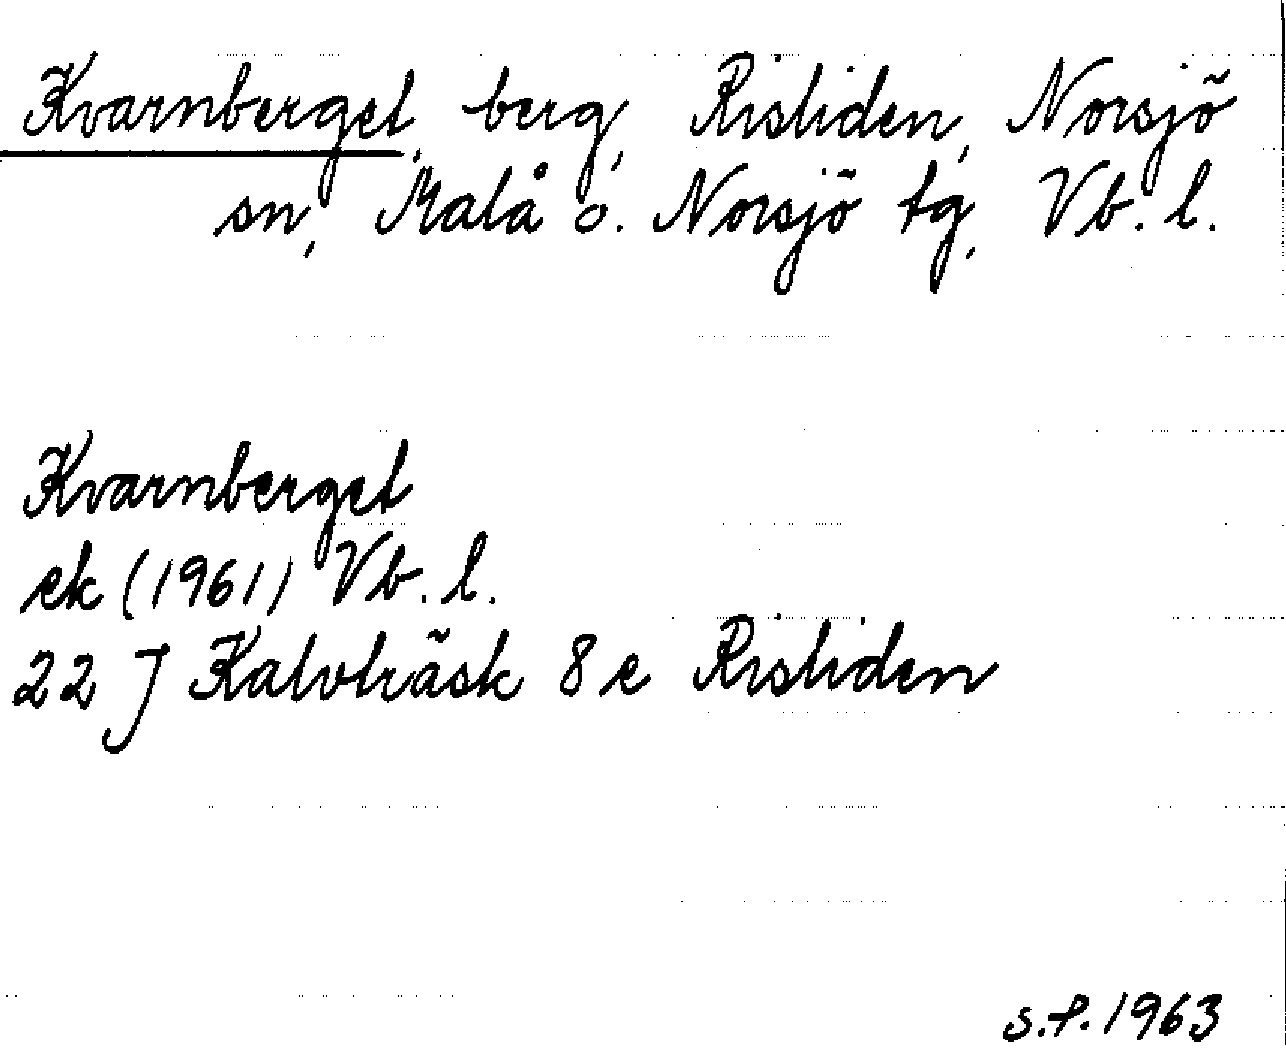 Kvarnberget, berg, Risliden, Norsjö
sn, Malå o. Norsjö tg, Vb. l.
Kvarnberget
ek (1961) Vb. l.
22 J Kalvträsk 8 e Risliden
S.P. 1963